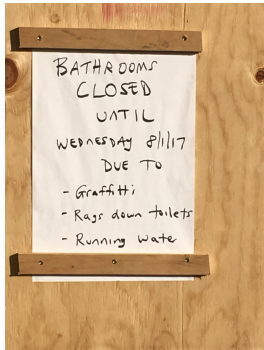 BATHROOMS
CLOSED
UNTIL
WEDNESDAY 8/1/17
DUE TO
- Graffitti
- Rags down toilets
- Running Wate